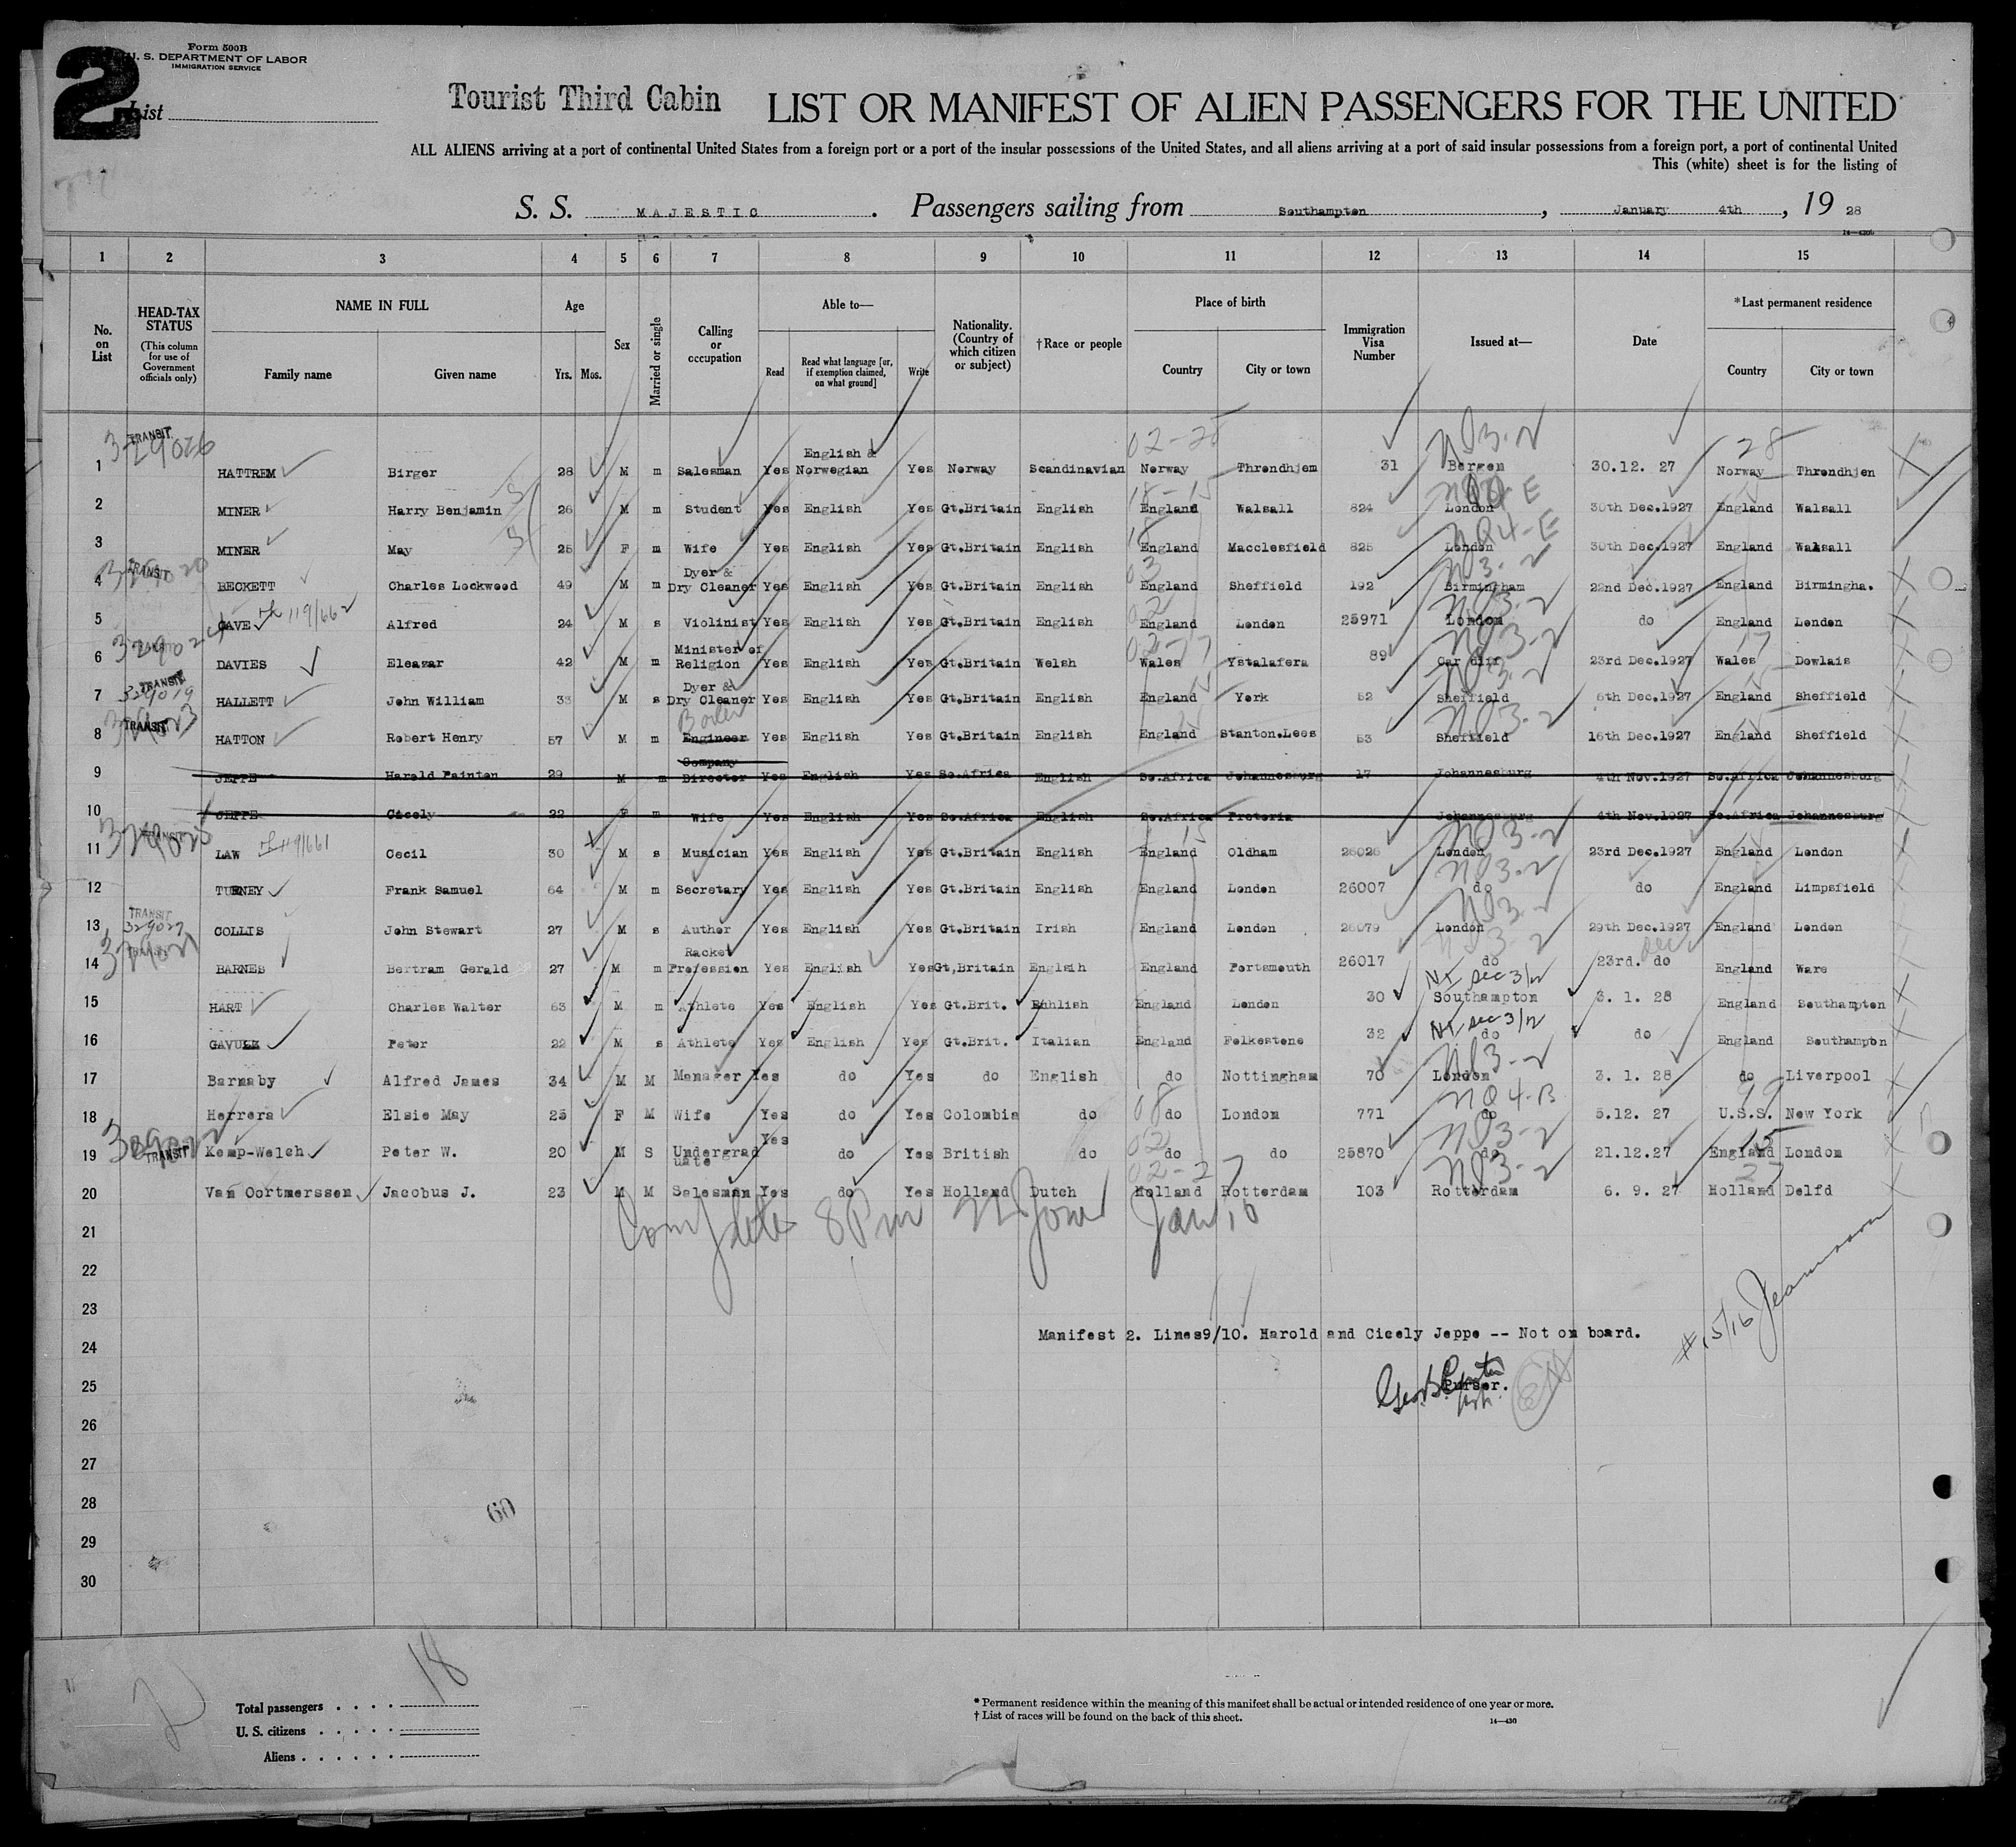 Form 500B
U. S. DEPARTMENT OF LABOR
IMMIGRATION SERVICE
2
List
Tourist Third Cabin LIST OR MANIFEST OF ALIEN PASSENGERS FOR THE UNITED
ALL ALIENS arriving at a port of continental United States from a foreign port or a port of the insular possessions of the United States, and all aliens arriving at a port of said insular possessions from a foreign port, a port of continental United
This (white) sheet is for the listing of
S. S. MAJESTIC. Passengers sailing from Southampton, January 4th, 19 28
14—430b
1 2 3 4 5 6 7 8 9 10 11 12 13 14 15
No. on List HEAD-TAX STATUS (This column for use of Government officials only) NAME IN FULL Family name Given name Age Yrs. Mos. Sex Married or single Calling or occupation Able to— Read Read what language [or, if exemption claimed, on what ground] Write Nationality. (Country of which citizen or subject) †Race or people Place of birth Country City or town Immigration Visa Number Issued at— Date *Last permanent residence Country City or town
1 TRANSIT 329026 HATTREM Birger 28 M m Salesman Yes English & Norwegian Yes Norway Scandinavian 02-25 Norway Throndhjem 31 NO3-2 Bergen 30.12. 27 28 Norway Throndhjen
2 MINER Harry Benjamin 26 M m Student Yes English Yes Gt.Britain English 18-15 England Walsall 824 London 30th Dec.1927 15 England Walsall
3 MINER May 25 F m Wife Yes English Yes Gt.Britain English 18 England Macclesfield 825 NQ4-E London 30th Dec.1927 England Walsall
4 TRANSIT 329020 BECKETT Charles Lockwood 49 M m Dyer & Dry Cleaner Yes English Yes Gt.Britain English 03 England Sheffield 192 NO3-2 Birmingham 22nd Dec.1927 England Birmingha.
5 CAVE 119/662 Alfred 24 M s Violinist Yes English Yes Gt.Britain English 02 England London 25971 NO3-2 London do England London
6 DAVIES Eleazar 42 M m Minister of Religion Yes English Yes Gt.Britain Welsh 02-17 Wales Ystalafera 89 NO3-2 Car diff 23rd Dec.1927 17 Wales Dowlais
7 TRANSIT 329019 HALLETT John William 33 M s Dyer & Dry Cleaner Yes English Yes Gt.Britain English 15 England York 52 NO3-2 Sheffield 6th Dec.1927 15 England Sheffield
8 TRANSIT 329023 HATTON Robert Henry 57 M m Boiler Engineer Yes English Yes Gt.Britain English England Stanton.Lees 53 NO3-2 Sheffield 16th Dec.1927 15 England Sheffield
9 JEPPE Harold Fainton 29 M m Company Director Yes English Yes So.Africa English So.Africa Johannesburg 17 Johannesburg 4th Nov.1927 So.Africa Johannesburg
10 JEPPE Cicely 22 F m Wife Yes English Yes So.Africa English So.Africa Pretoria Johannesburg 4th Nov.1927 So.Africa Johannesburg
11 TRANSIT LAW 119/661 Cecil 30 M s Musician Yes English Yes Gt.Britain English 15 England Oldham 26026 NO3-2 London 23rd Dec.1927 15 England London
12 TURNEY Frank Samuel 64 M m Secretary Yes English Yes Gt.Britain English England London 26007 NO3-2 do do England Limpsfield
13 TRANSIT 329027 COLLIS John Stewart 27 M s Author Yes English Yes Gt.Britain Irish England London 26079 NO3-2 London 29th Dec.1927 England London
14 TRANSIT 329021 BARNES Bertram Gerald 27 M m Racket Profession Yes English Yes Gt,Britain Englsih England Portsmouth 26017 NO3-2 do 23rd. do Dec England Ware
15 HART Charles Walter 63 M m Athlete Yes English Yes Gt.Brit. Ehhlish England London 30 N.I. sec 3/2 Southampton 3. 1. 28 England Southampton
16 GAVUZZ Peter 22 M s Athlete Yes English Yes Gt.Brit. Italian England Folkestone 32 N.I. sec 3/2 do do England Southampton
17 Barnaby Alfred James 34 M M Manager Yes do Yes do English do Nottingham 70 NO3-2 London 3. 1. 28 do Liverpool
18 Herrera Elsie May 25 F M Wife Yes do Yes Colombia do 08 do London 771 NQ4-B do 5.12. 27 99 U.S.S. New York
19 TRANSIT 329022 Kemp-Welch Peter W. 20 M S Undergrad uate Yes do Yes British do 02 do do 25870 NO3-2 do 21.12.27 15 England London
20 Van Oortmerssen Jacobus J. 23 M M Salesman Yes do Yes Holland Dutch 02-27 Holland Rotterdam I03 NO3-2 Rotterdam 6. 9. 27 27 Holland Delfd
Complete 8 Pm Jan 10
21
22
23
24 Manifest 2. Lines9/10. Harold and Cicely Jeppe -- Not on board.
#15/16
25 Purser.
26
27
28 60
29
30
2
18
Total passengers
U. S. citizens
Aliens
* Permanent residence within the meaning of this manifest shall be actual or intended residence of one year or more.
† List of races will be found on the back of this sheet. 14—430